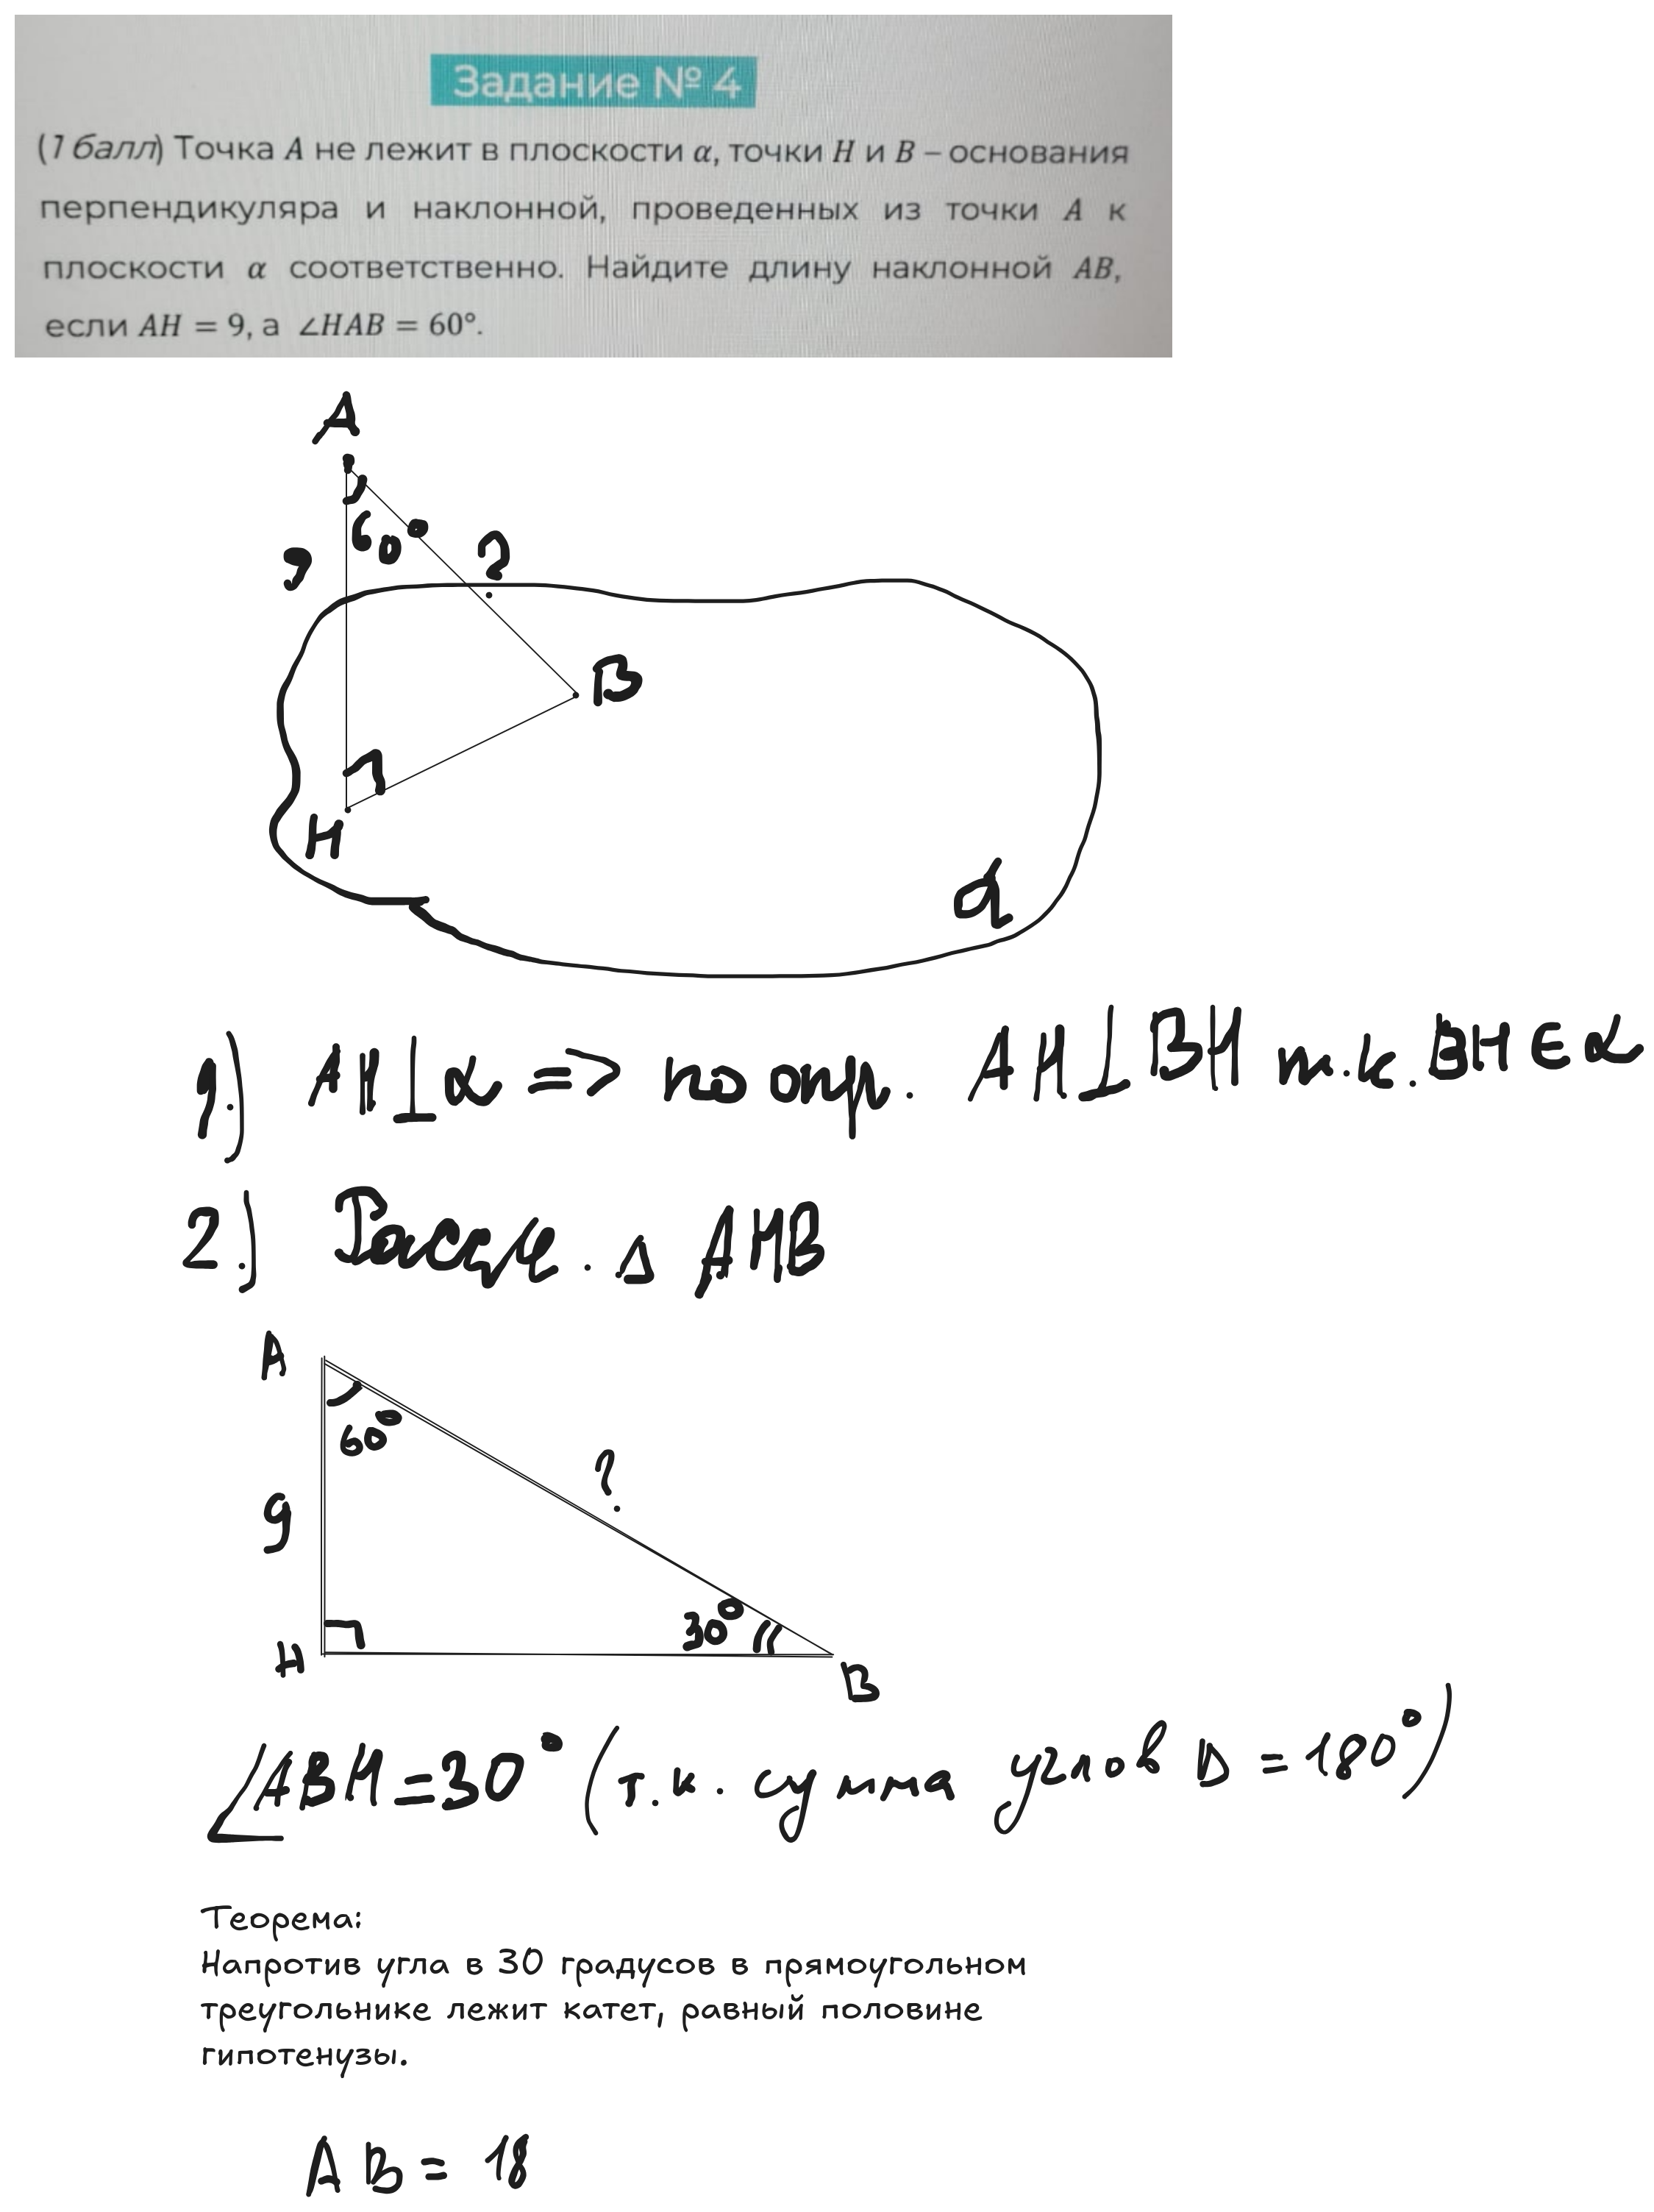 Задание № 4
(1 балл) Точка A не лежит в плоскости α, точки H и B – основания
перпендикуляра и наклонной, проведенных из точки A к
плоскости α соответственно. Найдите длину наклонной AB,
если AH = 9, а ∠HAB = 60°.
A
60°
9
?
B
H
α
1.) AH⊥α => по опр. AH⊥BH т.к. BH∈α
2.) Рассм. △ AHB
A
60°
?
9
30°
H
B
∠ABH=30° (т.к. сумма углов △ =180°)
Теорема:
Напротив угла в 30 градусов в прямоугольном
треугольнике лежит катет, равный половине
гипотенузы.
AB = 18